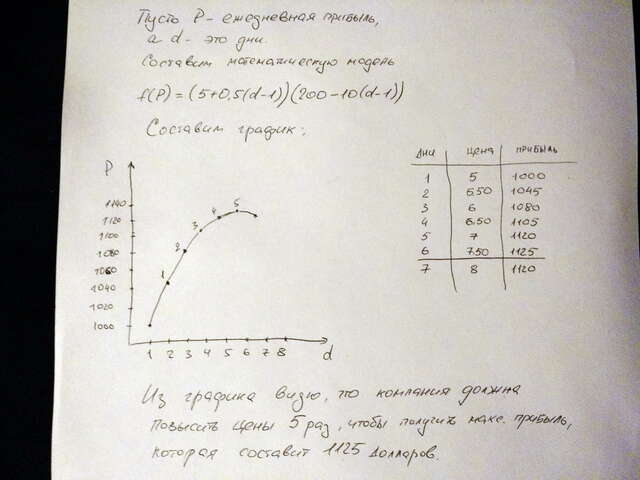 Пусть P - ежедневная прибыль,
а d - это дни.
Составим математическую модель
f(P) = (5+0,5(d-1))(200-10(d-1))
Составим график:
ДНИ ЦЕНА ПРИБЫЛЬ
1 5 1000
2 5.50 1045
3 6 1080
4 6.50 1105
5 7 1120
6 7.50 1125
7 8 1120
P
1140
1120
1100
1080
1060
1040
1020
1000
1 2 3 4 5
1 2 3 4 5 6 7 8 d
Из графика вижу, то компания должна
повысить цены 5 раз, чтобы получить макс. прибыль,
которая составит 1125 долларов.